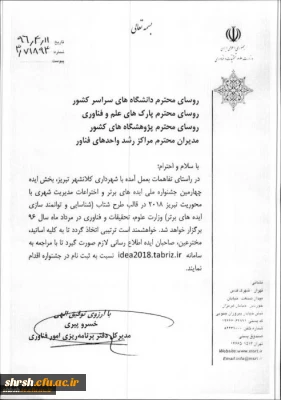 بسمه تعالی
تاریخ ۹۶,۴,۱۱
۳/۷۱۸۹۳
پیوست
روسای محترم دانشگاه های سراسر کشور
روسای محترم پارک های علم و فناوری
روسای محترم پژوهشگاه های کشور
مدیران محترم مراکز رشد واحدهای فناور
با سلام و احترام؛
در راستای تفاهمات بعمل آمده با شهرداری کلانشهر تبریز، بخش ایده
چهارمین جشنواره ملی ایده های برتر و اختراعات مدیریت شهری با
محوریت تبریز ۲۰۱۸ در قالب طرح شتاب (شناسایی و توانمند سازی
ایده های برتر) وزارت علوم، تحقیقات و فناوری در مرداد ماه سال ۹۶
برگزار خواهد شد. خواهشمند است ترتیبی اتخاذ گردد تا به کلیه اساتید،
مخترعین، صاحبان ایده اطلاع رسانی لازم صورت گیرد تا با مراجعه به
سامانه idea2018.tabriz.ir نسبت به ثبت نام در جشنواره اقدام
نمایند.
با آرزوی توفیق الهی
خسرو پیری
مدیرکل دفتر برنامه‌ریزی امور فناوری
shrsh.cfu.ac.ir